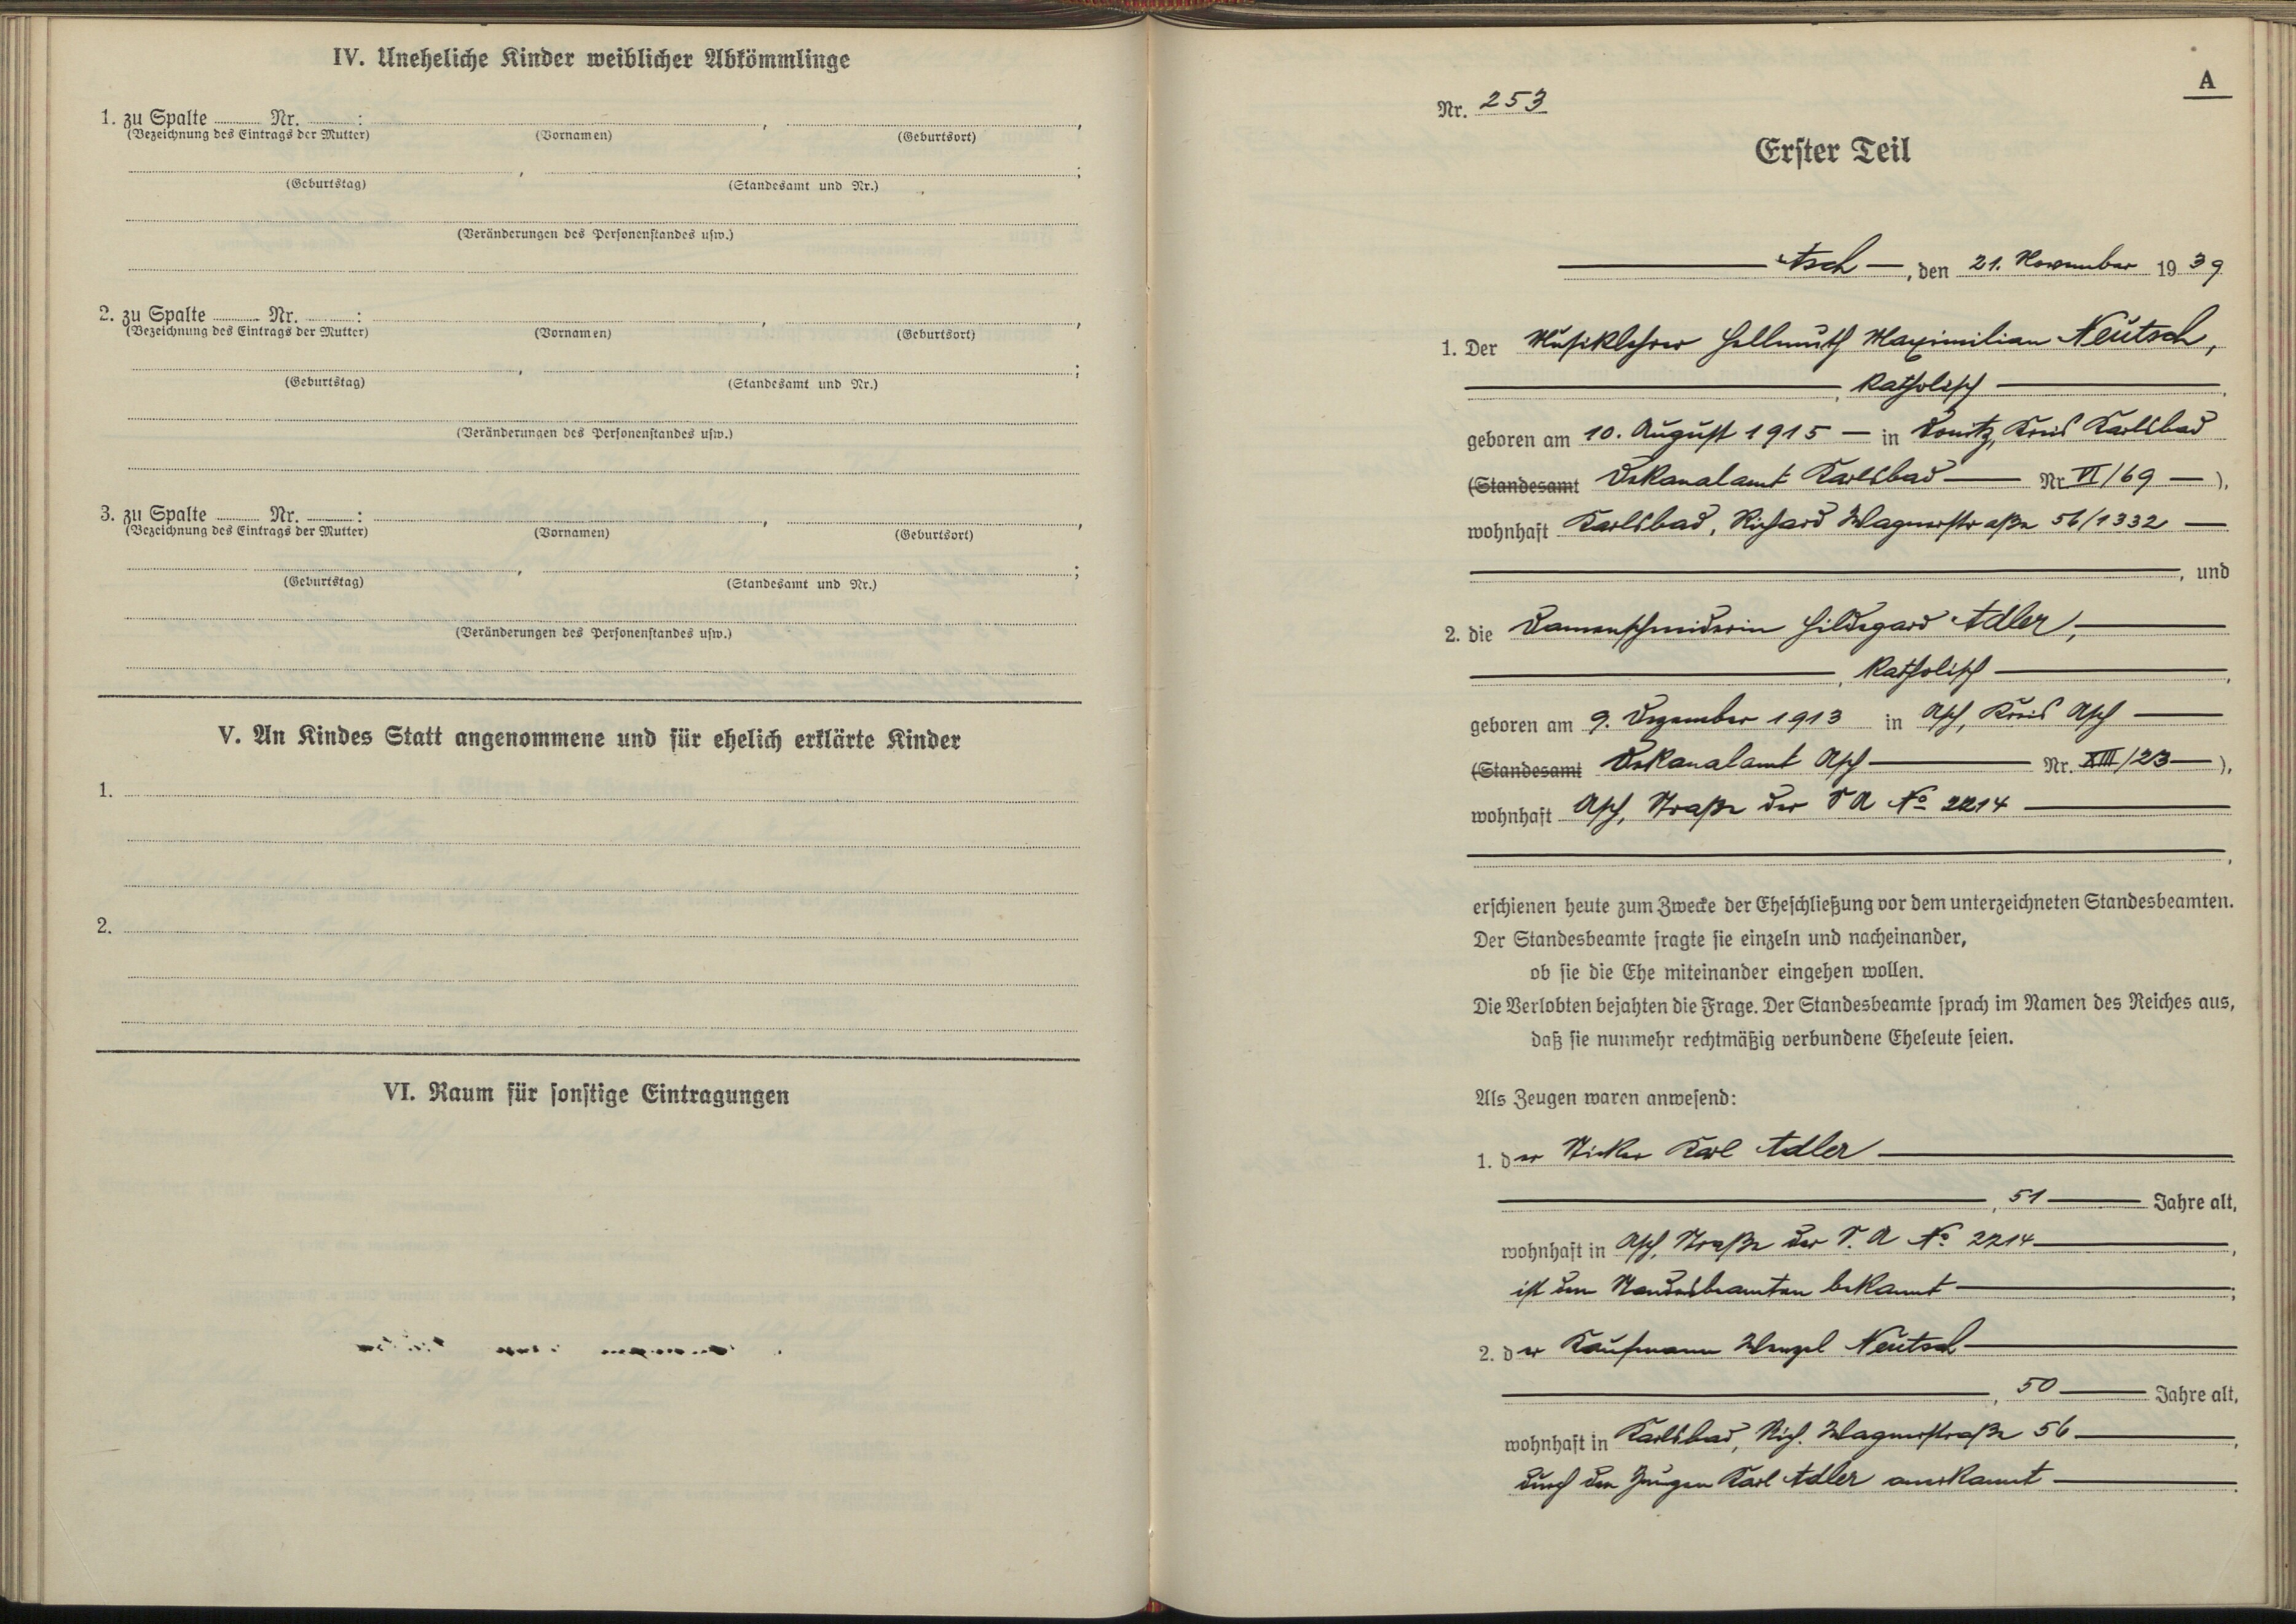 IV. Uneheliche Kinder weiblicher Abkömmlinge
1. zu Spalte Nr. : , ,
(Bezeichnung des Eintrags der Mutter) (Vornamen) (Geburtsort)
, ;
(Geburtstag) (Standesamt und Nr.)
(Veränderungen des Personenstandes usw.)
2. zu Spalte Nr. : , ,
(Bezeichnung des Eintrags der Mutter) (Vornamen) (Geburtsort)
, ;
(Geburtstag) (Standesamt und Nr.)
(Veränderungen des Personenstandes usw.)
3. zu Spalte Nr. : , ,
(Bezeichnung des Eintrags der Mutter) (Vornamen) (Geburtsort)
, ;
(Geburtstag) (Standesamt und Nr.)
(Veränderungen des Personenstandes usw.)
V. An Kindes Statt angenommene und für ehelich erklärte Kinder
1.
2.
VI. Raum für sonstige Eintragungen
A
Nr. 253
Erster Teil
Asch, den 21. November 1939
1. Der Musiklehrer Hellmuth Maximilian Neutsch,
, katholisch,
geboren am 10. August 1915 in Donitz, Kreis Karlsbad
(Standesamt Dekanalamt Karlsbad Nr VI/69),
wohnhaft Karlsbad, Richard Wagnerstraße 56/1332
, und
2. die Damenschneiderin Hildegard Adler,
, katholisch,
geboren am 9. Dezember 1913 in Asch, Kreis Asch
(Standesamt Dekanalamt Asch Nr. XIII/23),
wohnhaft Asch, Straße der S A No 2214
,
erschienen heute zum Zwecke der Eheschließung vor dem unterzeichneten Standesbeamten.
Der Standesbeamte fragte sie einzeln und nacheinander,
ob sie die Ehe miteinander eingehen wollen.
Die Verlobten bejahten die Frage. Der Standesbeamte sprach im Namen des Reiches aus,
daß sie nunmehr rechtmäßig verbundene Eheleute seien.
Als Zeugen waren anwesend:
1. der Wirker Karl Adler
, 51 Jahre alt,
wohnhaft in Asch, Straße der S. A No 2214,
ist dem Standesbeamten bekannt;
2. der Kaufmann Wenzel Neutsch
, 50 Jahre alt,
wohnhaft in Karlsbad, Rich. Wagnerstraße 56,
durch den Zeugen Karl Adler anerkannt.